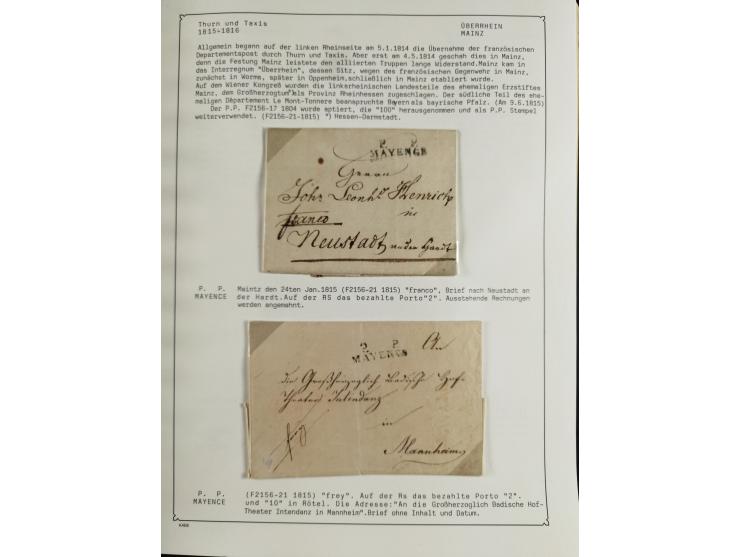 Thurn und Taxis
1815-1816
ÜBERRHEIN
MAINZ
Allgemein begann auf der linken Rheinseite am 5.1.1814 die Übernahme der französischen
Departementspost durch Thurn und Taxis. Aber erst am 4.5.1814 geschah dies in Mainz,
denn die Festung Mainz leistete den alliierten Truppen lange Widerstand.Mainz kam in
das Interregnum "Überrhein", dessen Sitz, wegen des französischen Gegenwehr in Mainz,
zunächst in Worms, später in Oppenheim,schließlich in Mainz etabliert wurde.
Auf dem Wiener Kongreß wurden die linkerheinischen Landesteile des ehemaligen Erzstiftes
Mainz, dem Großherzogtum*)als Provinz Rheinhessen zugeschlagen. Der südliche Teil des ehe-
maligen Département Le Mont-Tonnere beanspruchte Bayern als bayrische Pfalz. (Am 9.6.1815)
Der P.P. F2156-17 1804 wurde aptiert, die "100" herausgenommen und als P.P. Stempel
weiterverwendet. (F2156-21-1815) *) Hessen-Darmstadt.
P. P.
MAYENCE
Herrn
Johr Leonhd Henrich
in
franco
Neustadt an der Hardt
P. P. Maintz den 24ten Jan.1815 (F2156-21 1815) "franco", Brief nach Neustadt an
MAYENCE der Hardt.Auf der RS das bezahlte Porto"2". Ausstehende Rechnungen
werden angemahnt.
P
MAYENCE
An
die Großherzoglich Badische Hof-
Theater Intendanz
in
Mannheim
P. P. (F2156-21 1815) "frey". Auf der Rs das bezahlte Porto "2".
MAYENCE und "10" in Rötel. Die Adresse:"An die Großherzoglich Badische Hof-
Theater Intendanz in Mannheim".Brief ohne Inhalt und Datum.